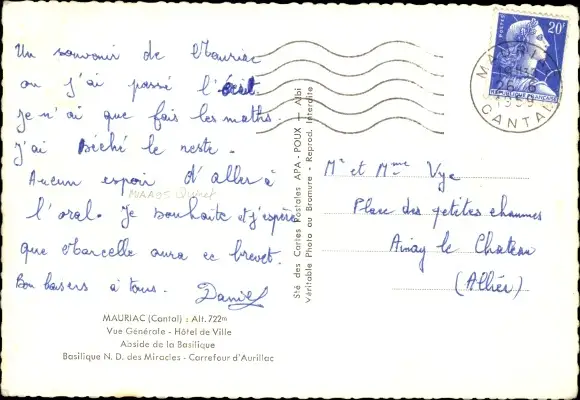 Un souvenir de Mauriac
ou j'ai passé l'écrit.
Je n'ai que fais les maths.
J'ai séché le reste.
Aucun espoir d'aller à
l'oral. Je souhaite et j'espère
que Marcelle aura ec brevet.
Bon baisers à tous. Daniel
MAURIAC (Cantal) : Alt. 722m
Vue Générale - Hôtel de Ville
Abside de la Basilique
Basilique N. D. des Miracles - Carrefour d'Aurillac
Sté des Cartes Postales APA-POUX — Albi
Véritable Photo au Bromure - Reprod. Interdite
POSTES
20F
REPUBLIQUE FRANÇAISE
1959
CANTAL
Mr et Mme Vye
Place des petites chaumes
Ainay le Chateau
(Allier)